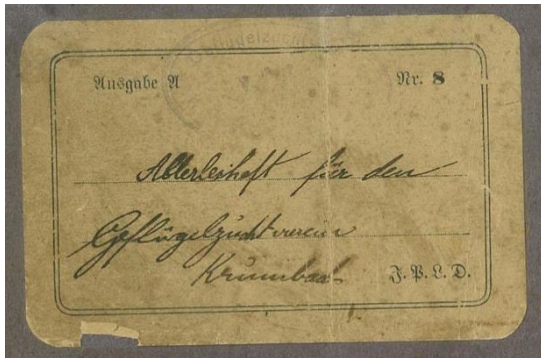 Geflügelzucht
Ausgabe A Nr. 8
Allerleiheft für den
Geflügelzuchtverein
Krumbach
J. P. L. D.